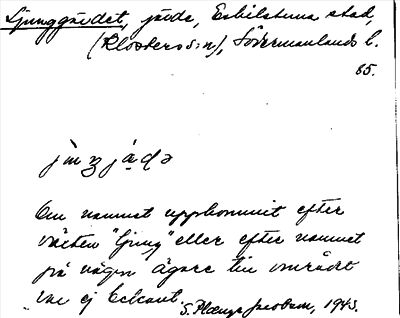 Ljunggärdet, järde, Eskilstuna stad,
(Klosters s:n), Södermanlands l.
85.
Om namnet uppkommit efter
växten "ljung" eller efter namnet
på någon ägare till området
var ej bekant.
S. Jacobson, 1943.